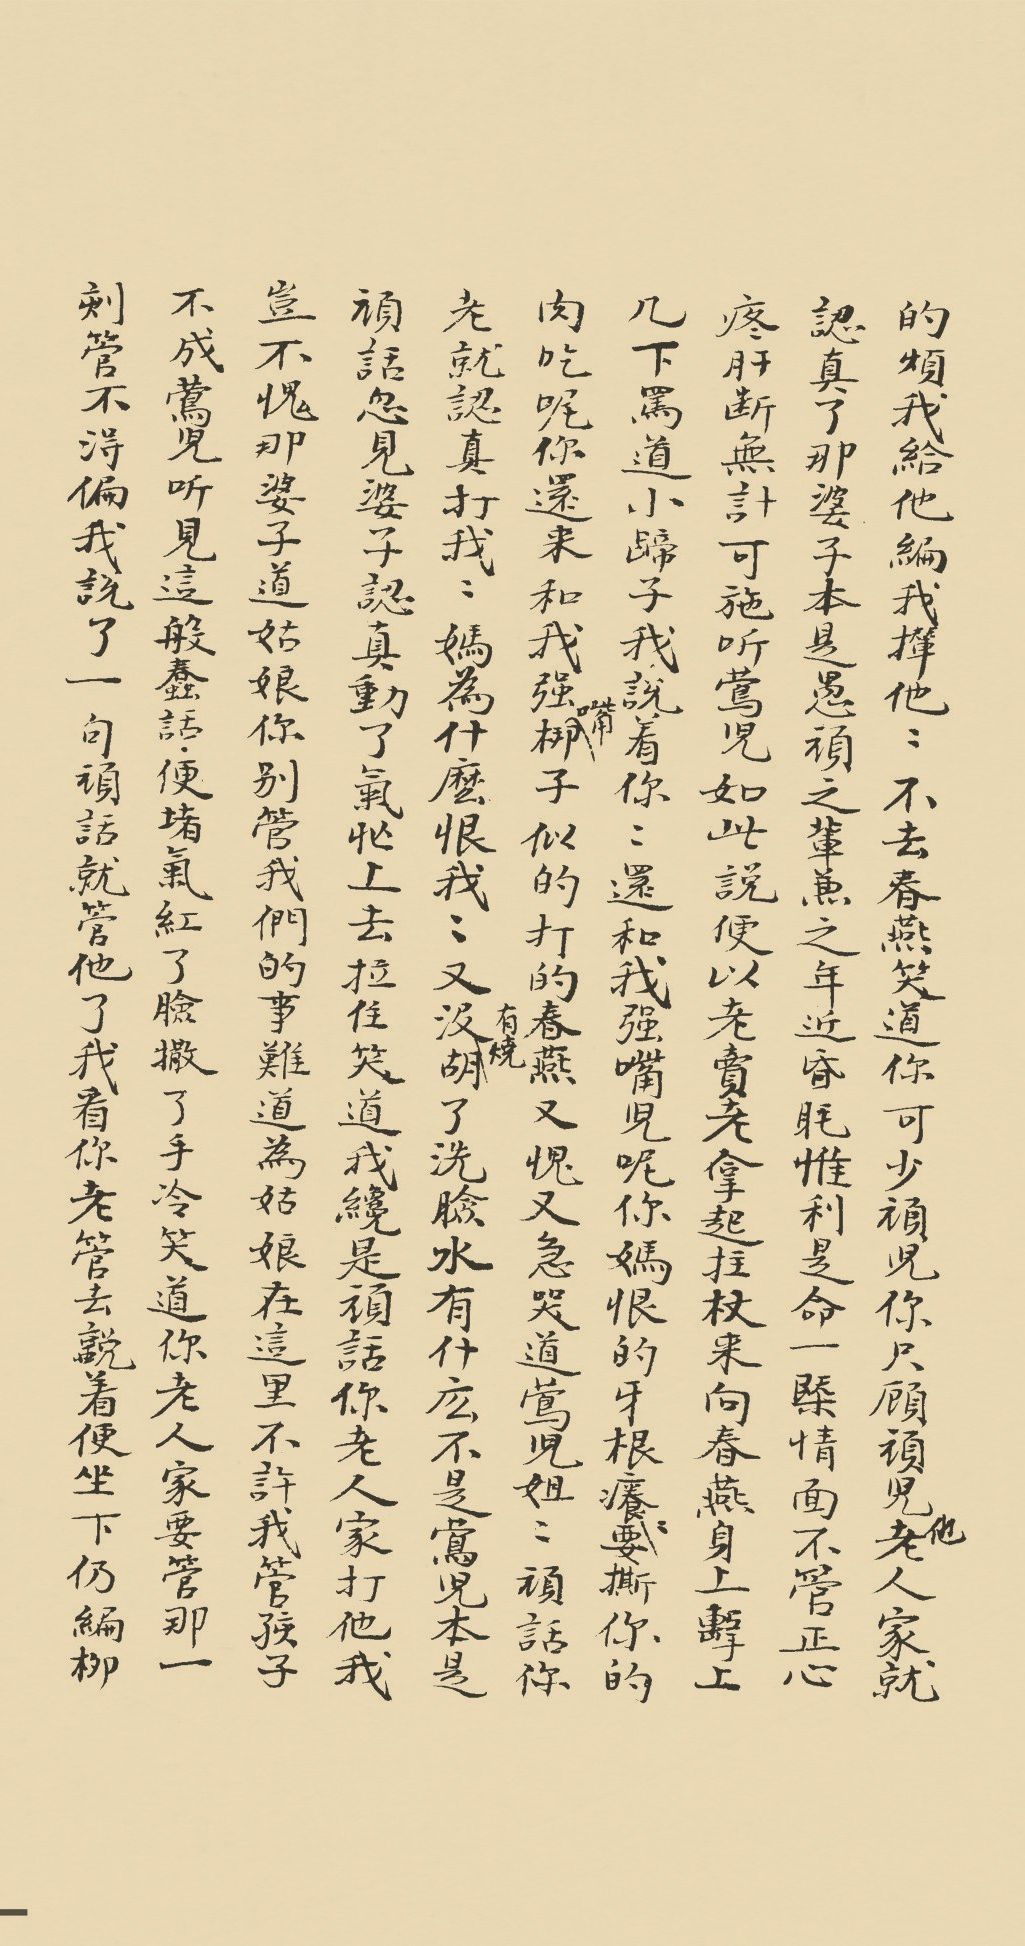 的煩我給他編我攆他〻不去春燕笑道你可少頑児你只顧頑児他老人家就
認真了那婆子本是愚頑之輩兼之年近昏眊惟利是命一槩情面不管正心
疼肝断無計可施听鶯児如此説便以老賣老拿起拄杖来向春燕身上擊上
几下罵道小蹄子我説着你〻還和我强嘴児呢你媽恨的牙根癢〻要撕你的
肉吃呢你還来和我强嘴梆子似的打的春燕又愧又急哭道鶯児姐〻頑話你
老就認真打我〻媽為什麽恨我〻又没有燒胡了洗臉水有什庅不是鶯児本是
頑話忽見婆子認真動了氣忙上去拉住笑道我纔是頑話你老人家打他我
豈不愧那婆子道姑娘你别管我們的事難道為姑娘在這里不許我管孩子
不成鶯児听見這般蠢話便堵氣紅了臉撒了手冷笑道你老人家要管那一
刻管不得偏我説了一句頑話就管他了我看你老管去説着便坐下仍編柳